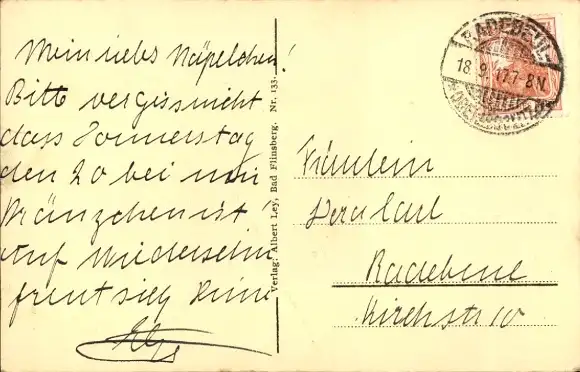 Mein liebs Näpelchen!
Bitte vergiss nicht
dass Donnerstag
den 20 bei mir
Kränzchen ist!
Auf Wiedersehn
freut sich Deine
Verlag: Albert Ley, Bad Flinsberg. Nr. 133.
RADEBEUL
18.9.17.7-8N.
Fräulein
Radebeul
Kirchstr 10